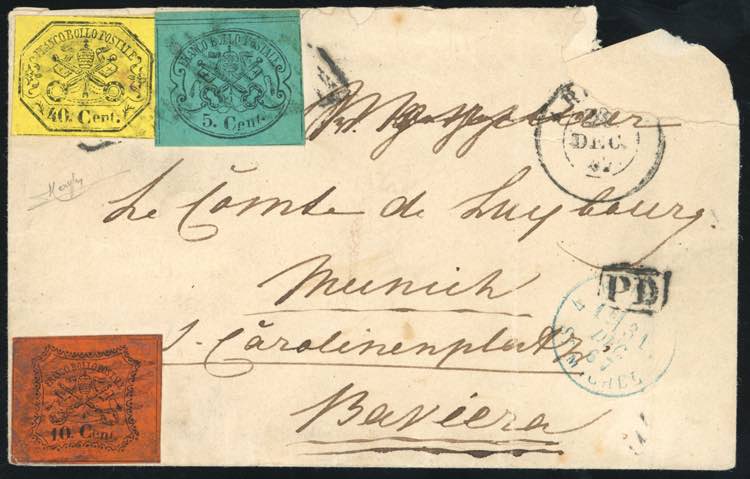 FRANCO BOLLO POSTALE
40. Cent.
FRANCO BOLLO POSTALE
5. Cent.
DEC.
67
Le Comte de Luxbourg.
Munich
PD
5. Carolinenplatz
31
DEC
67
ST MICHEL
Baviera
FRANCO BOLLO POSTALE
10. Cent.